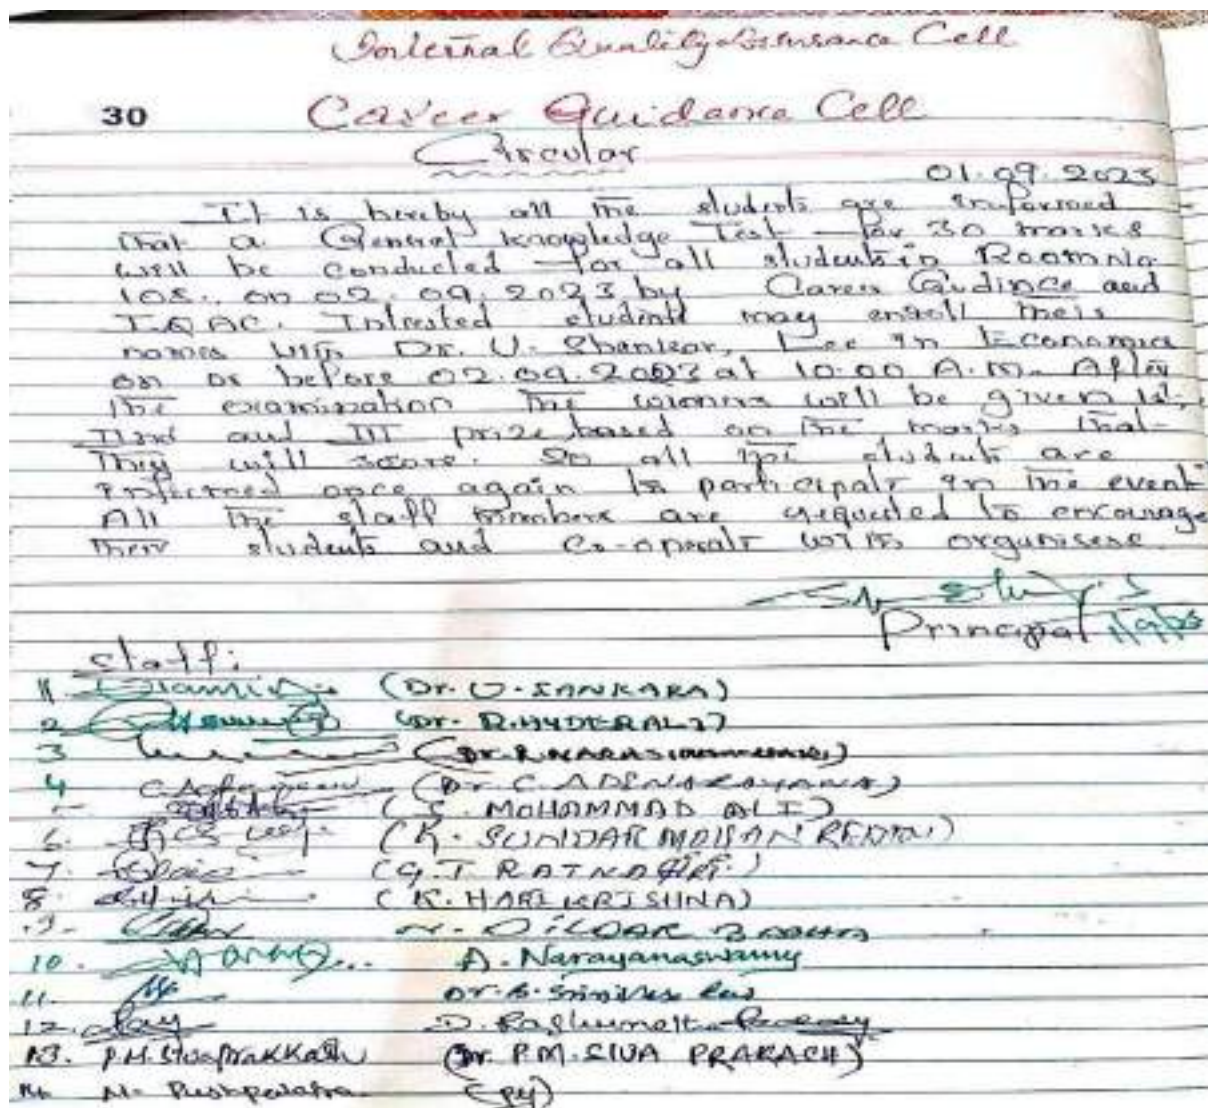 Internal Quality Assurance Cell
30 Career Guidance Cell
Circular
01.09.2023
It is hereby all the students are informed
that a General knowledge Test for 30 marks
will be conducted for all students in Room No
108.. on 02.09.2023 by Career Gudince and
IQAC. Intrested students may enroll their
names with Dr. U. Shankar, Lec in Economics
on or before 02.09.2023 at 10.00 A.M. After
the examination the winners will be given Ist,
IInd and III prize based on the marks that
they will score. So all the students are
informed once again to participate in the event
All the staff members are requested to encourage
their students and co-operate with organisers.
Principal 1/9/23
Staff:
1. (Dr. U. SANKARA)
2 (Dr. R. HYDERALI)
3
4 (Dr. C. ADINARAYANA)
5 (S. MOHAMMAD ALI)
6. (K. SUNDAR MOHAN REDDY)
7. (G.T. RATNAGIRI)
8. (K. HARI KRISHNA)
9. N. DILDAR BASHA
10. A. Narayanaswamy
11. Dr. B. Srinivasa Rao
12. D. Raghunath Reddy
13. P.M. SivaPrakkash (Dr. P.M. SIVA PRAKACH)
14 N. Pushpalatha